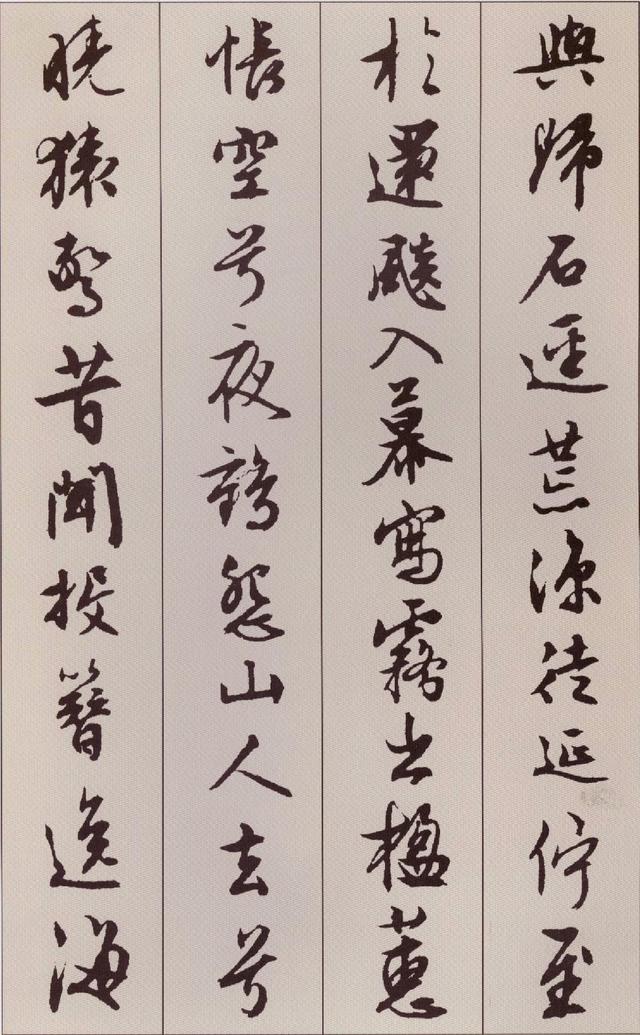 與歸石逕荒涼徒延佇至
於還飈入幕寫霧出楹蕙
悵空兮夜鶴怨山人去兮
曉猿驚昔聞投簪逸海